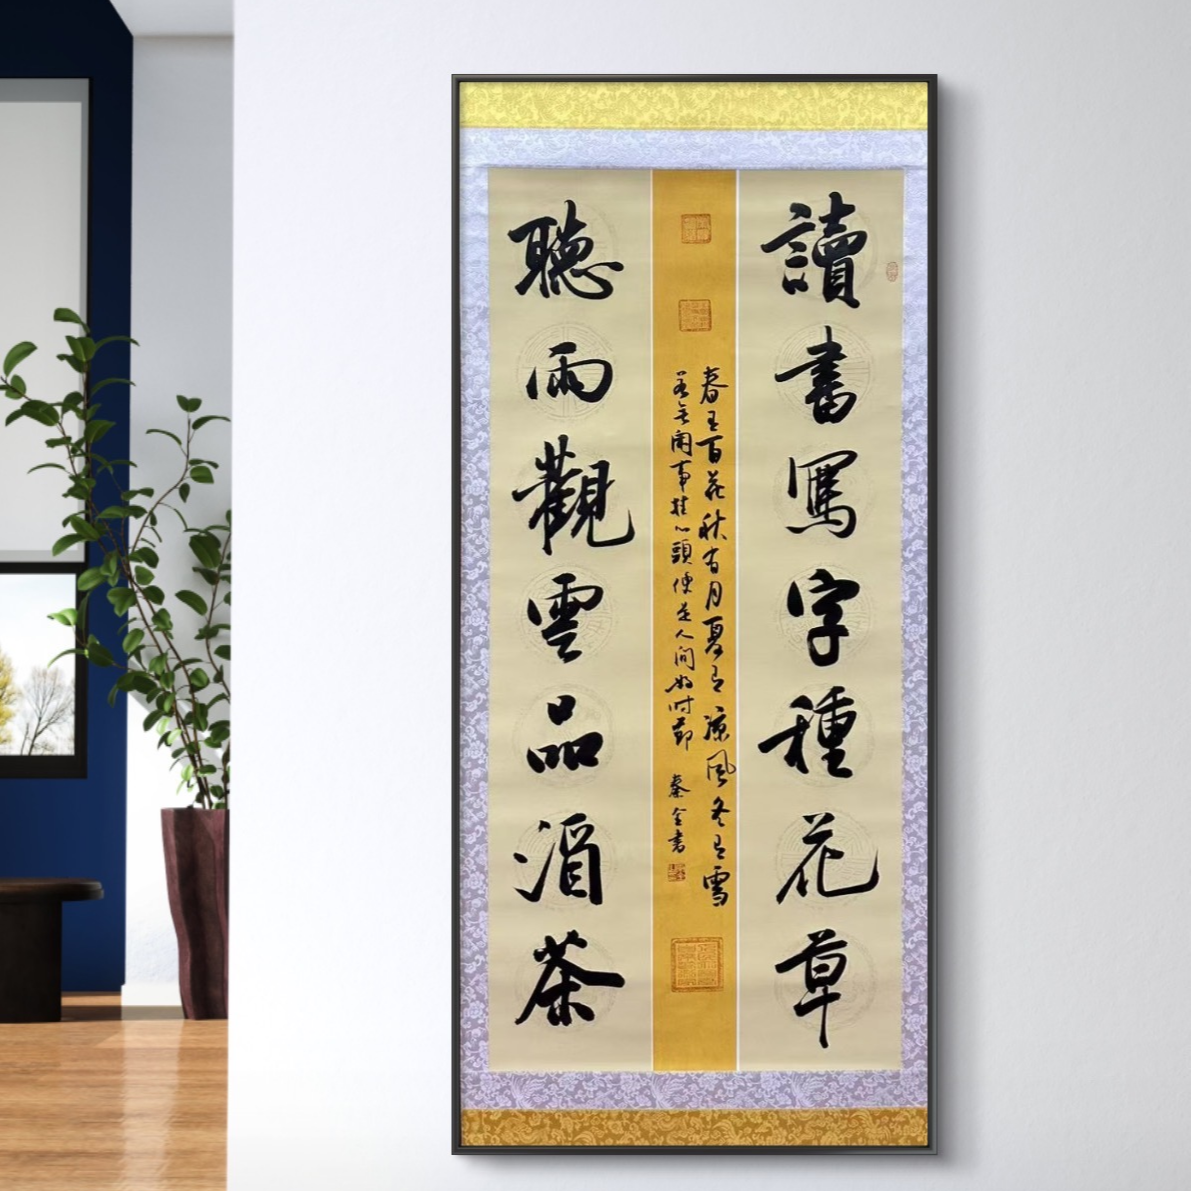 讀書寫字種花草
春有百花秋有月夏有涼風冬有雪
若無閑事挂心頭便是人間好時節
聽雨觀雲品酒茶